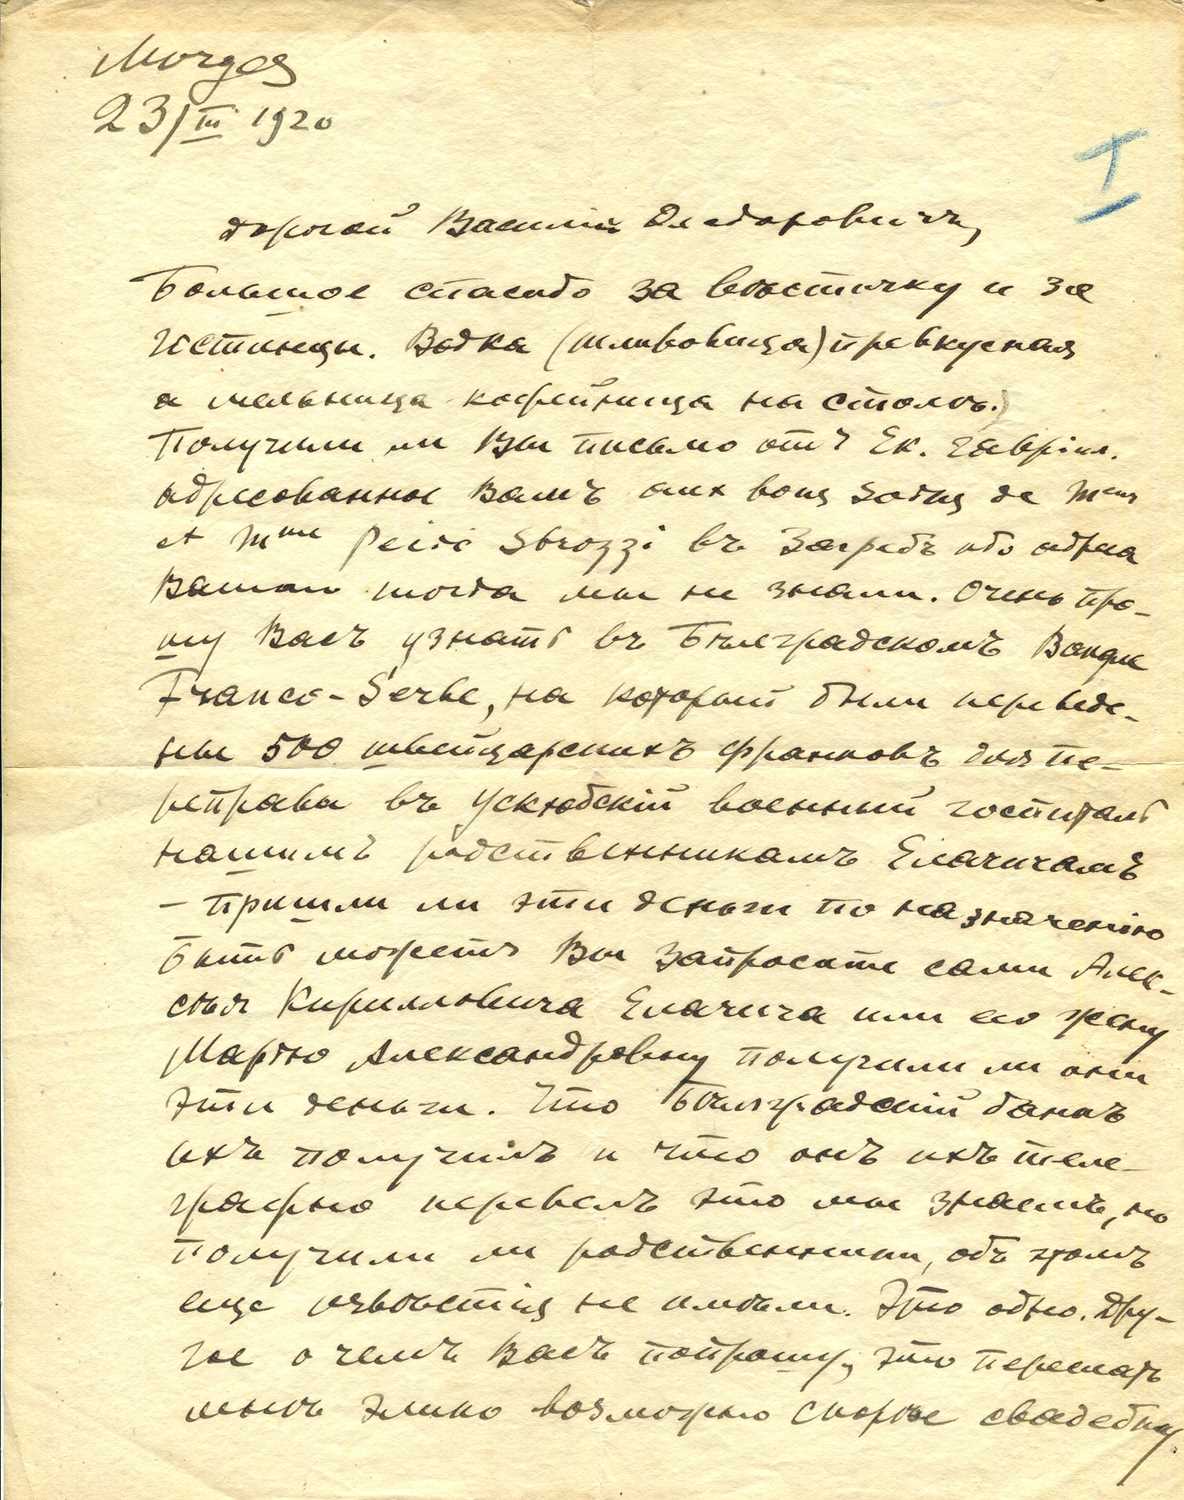 Morges
23/III 1920
I
Дорогой Василій Ѳедоровичъ,
Большое спасибо за вѣсточку и за
гостинцы. Водка (шливовица) превкусная
а мельница кофейница на столѣ.)
Получили ли Вы письмо отъ Ек. Гаврил.
адресованное Вамъ aux bons soins de Mr
et Mme Sbrozzi въ Загребъ ибо адреса
Вашего тогда мы не знали. Очень про-
шу Васъ узнать въ Бѣлградскомъ Banque
Franco-Serbe, на который были переведе-
ны 500 швейцарскихъ франковъ для пе-
реправы въ Ускюбскій военный госпиталь
нашимъ родственникамъ Елачичамъ
– пришли ли эти деньги по назначенію
Быть можетъ Вы запросите сами Алек-
сѣя Кирилловича Елачича или его жену
Марію Александровну получили ли они
эти деньги. Что Бѣлградскій банкъ
ихъ получилъ и что онъ ихъ теле-
графно перевелъ это мы знаемъ, но
получили ли родственники, объ этомъ
еще извѣстія не имѣли. Это одно. Дру-
гое о чемъ Васъ попрошу, это переслать
мнѣ елико возможно скорѣе свадебну.